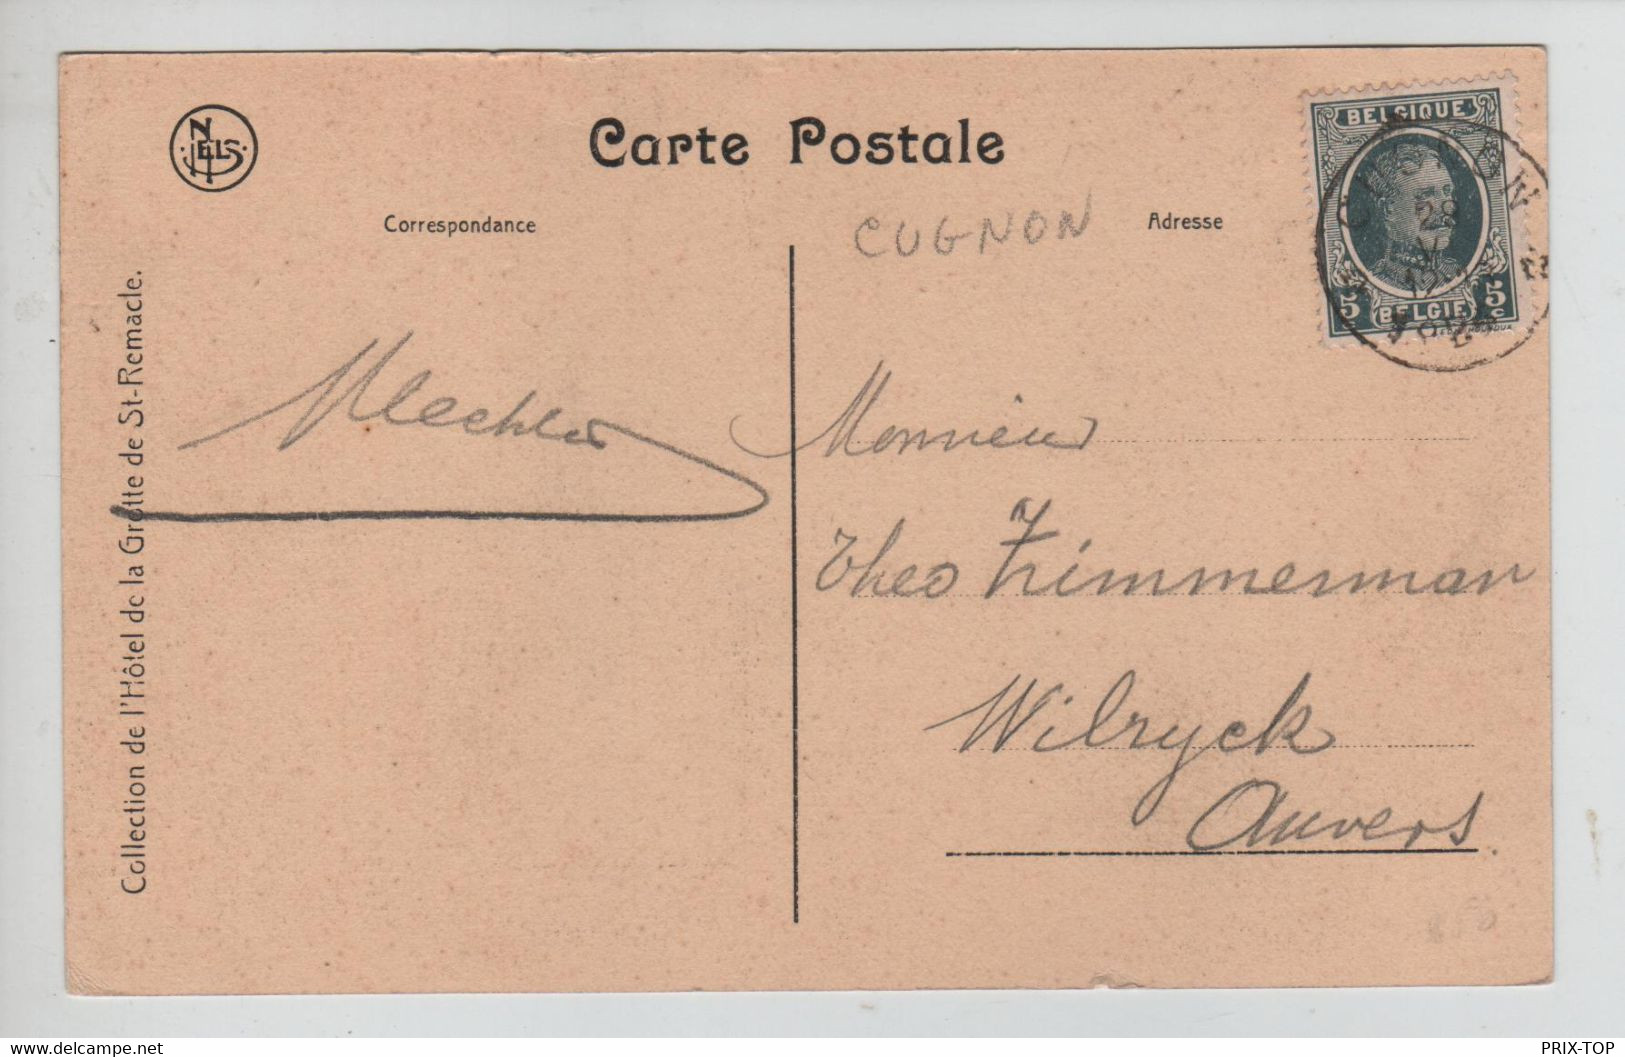 NELS
Carte Postale
Correspondance
Adresse
CUGNON
BELGIQUE
5 BELGIE 5
c
CUGNON
28
V
Collection de l'Hôtel de la Grotte de St-Remacle.
Monsieur
Theo Zimmerman
Wilryck
Anvers
www.delcampe.net
PRIX-TOP